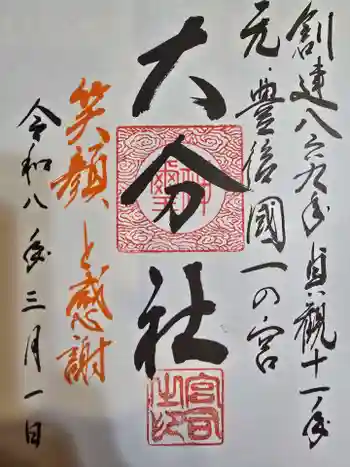 創建八六九年 貞観十一年
元・豊後國一の宮
大分社
笑顔と感謝
令和八年三月一日
宮司之印